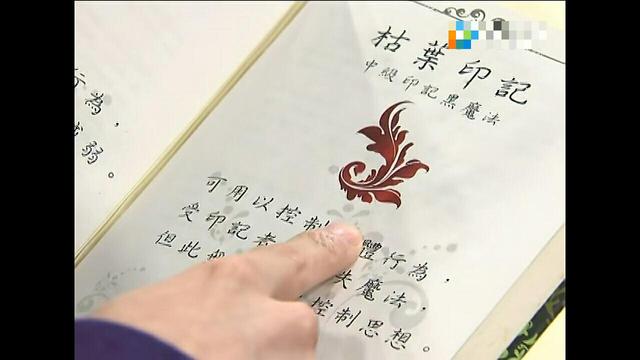 行為，
弱。
枯葉印記
中級印記黑魔法
可用以控制 體行為，
受印記者 失魔法，
但此 控制思想。